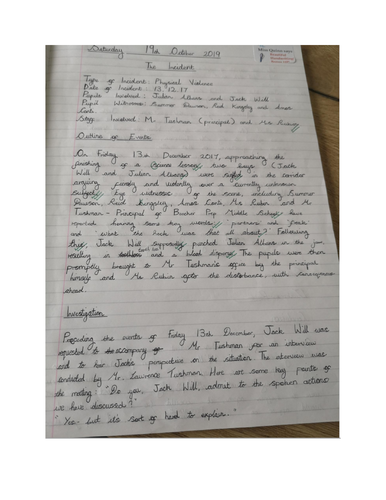 Saturday 19th October 2019
The Incident
Type of Incident: Physical Violence
Date of Incident: 13.12.17
Pupils Involved: Julian Albans and Jack Will
Pupil Witnesses: Summer Dawson, Reid Kingsley and Amos
Conti
Staff Involved Mr Tushman (principal) and Ms Rubin
Outline of Events
On Friday 13th December 2017, approaching the
finishing of a science lesson, two boys (Jack
Will and Julian Albans) were in the corridor
arguing and violently over a currently unknown
subject. Eye witnesses at the scene, including Summer
Dawson, Reid Kingsley, Amos Conti, Ms Rubin and Mr
Tushman - Principal of Beecher Prep Middle School have
reported hearing some key words: and 'freak'
and 'what the heck was that all about?' Following
this, Jack Will supposedly punched Julian Albans in the jaw
resulting in and a blood. The pupils were then
promptly brought to Mr Tushman's office by the principal
himself and Ms Rubin
Investigation
Preceding the events of Friday 13th December, Jack Will was
requested to accompany Mr Tushman for an interview
and to hear Jack's perspective on the situation. The interview was
conducted by Mr. Lawrence Tushman. Here are some key points of
the meeting: "Do you, Jack Will, admit to the spoken actions
we have discussed?"
"Yes but it's sort of hard to explain."